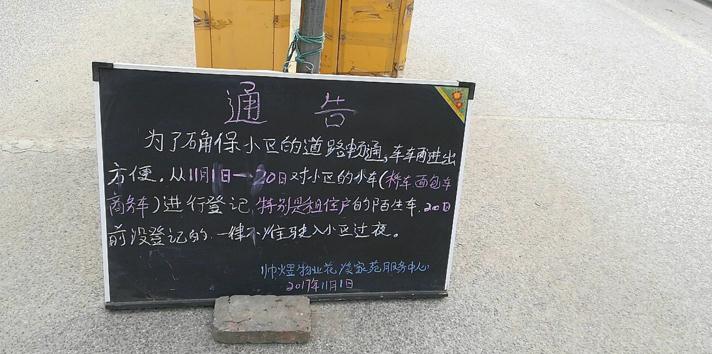 通 告
为了确保小区的道路畅通,车车两进出
方便。从11月1日一20日对小区的小车(桥车面包车
商务车)进行登记,特别是租住户的陌生车,20日
前没登记的,一律不准驶入小区过夜。
帅煜物业花溪家苑服务中心
2017年11月1日